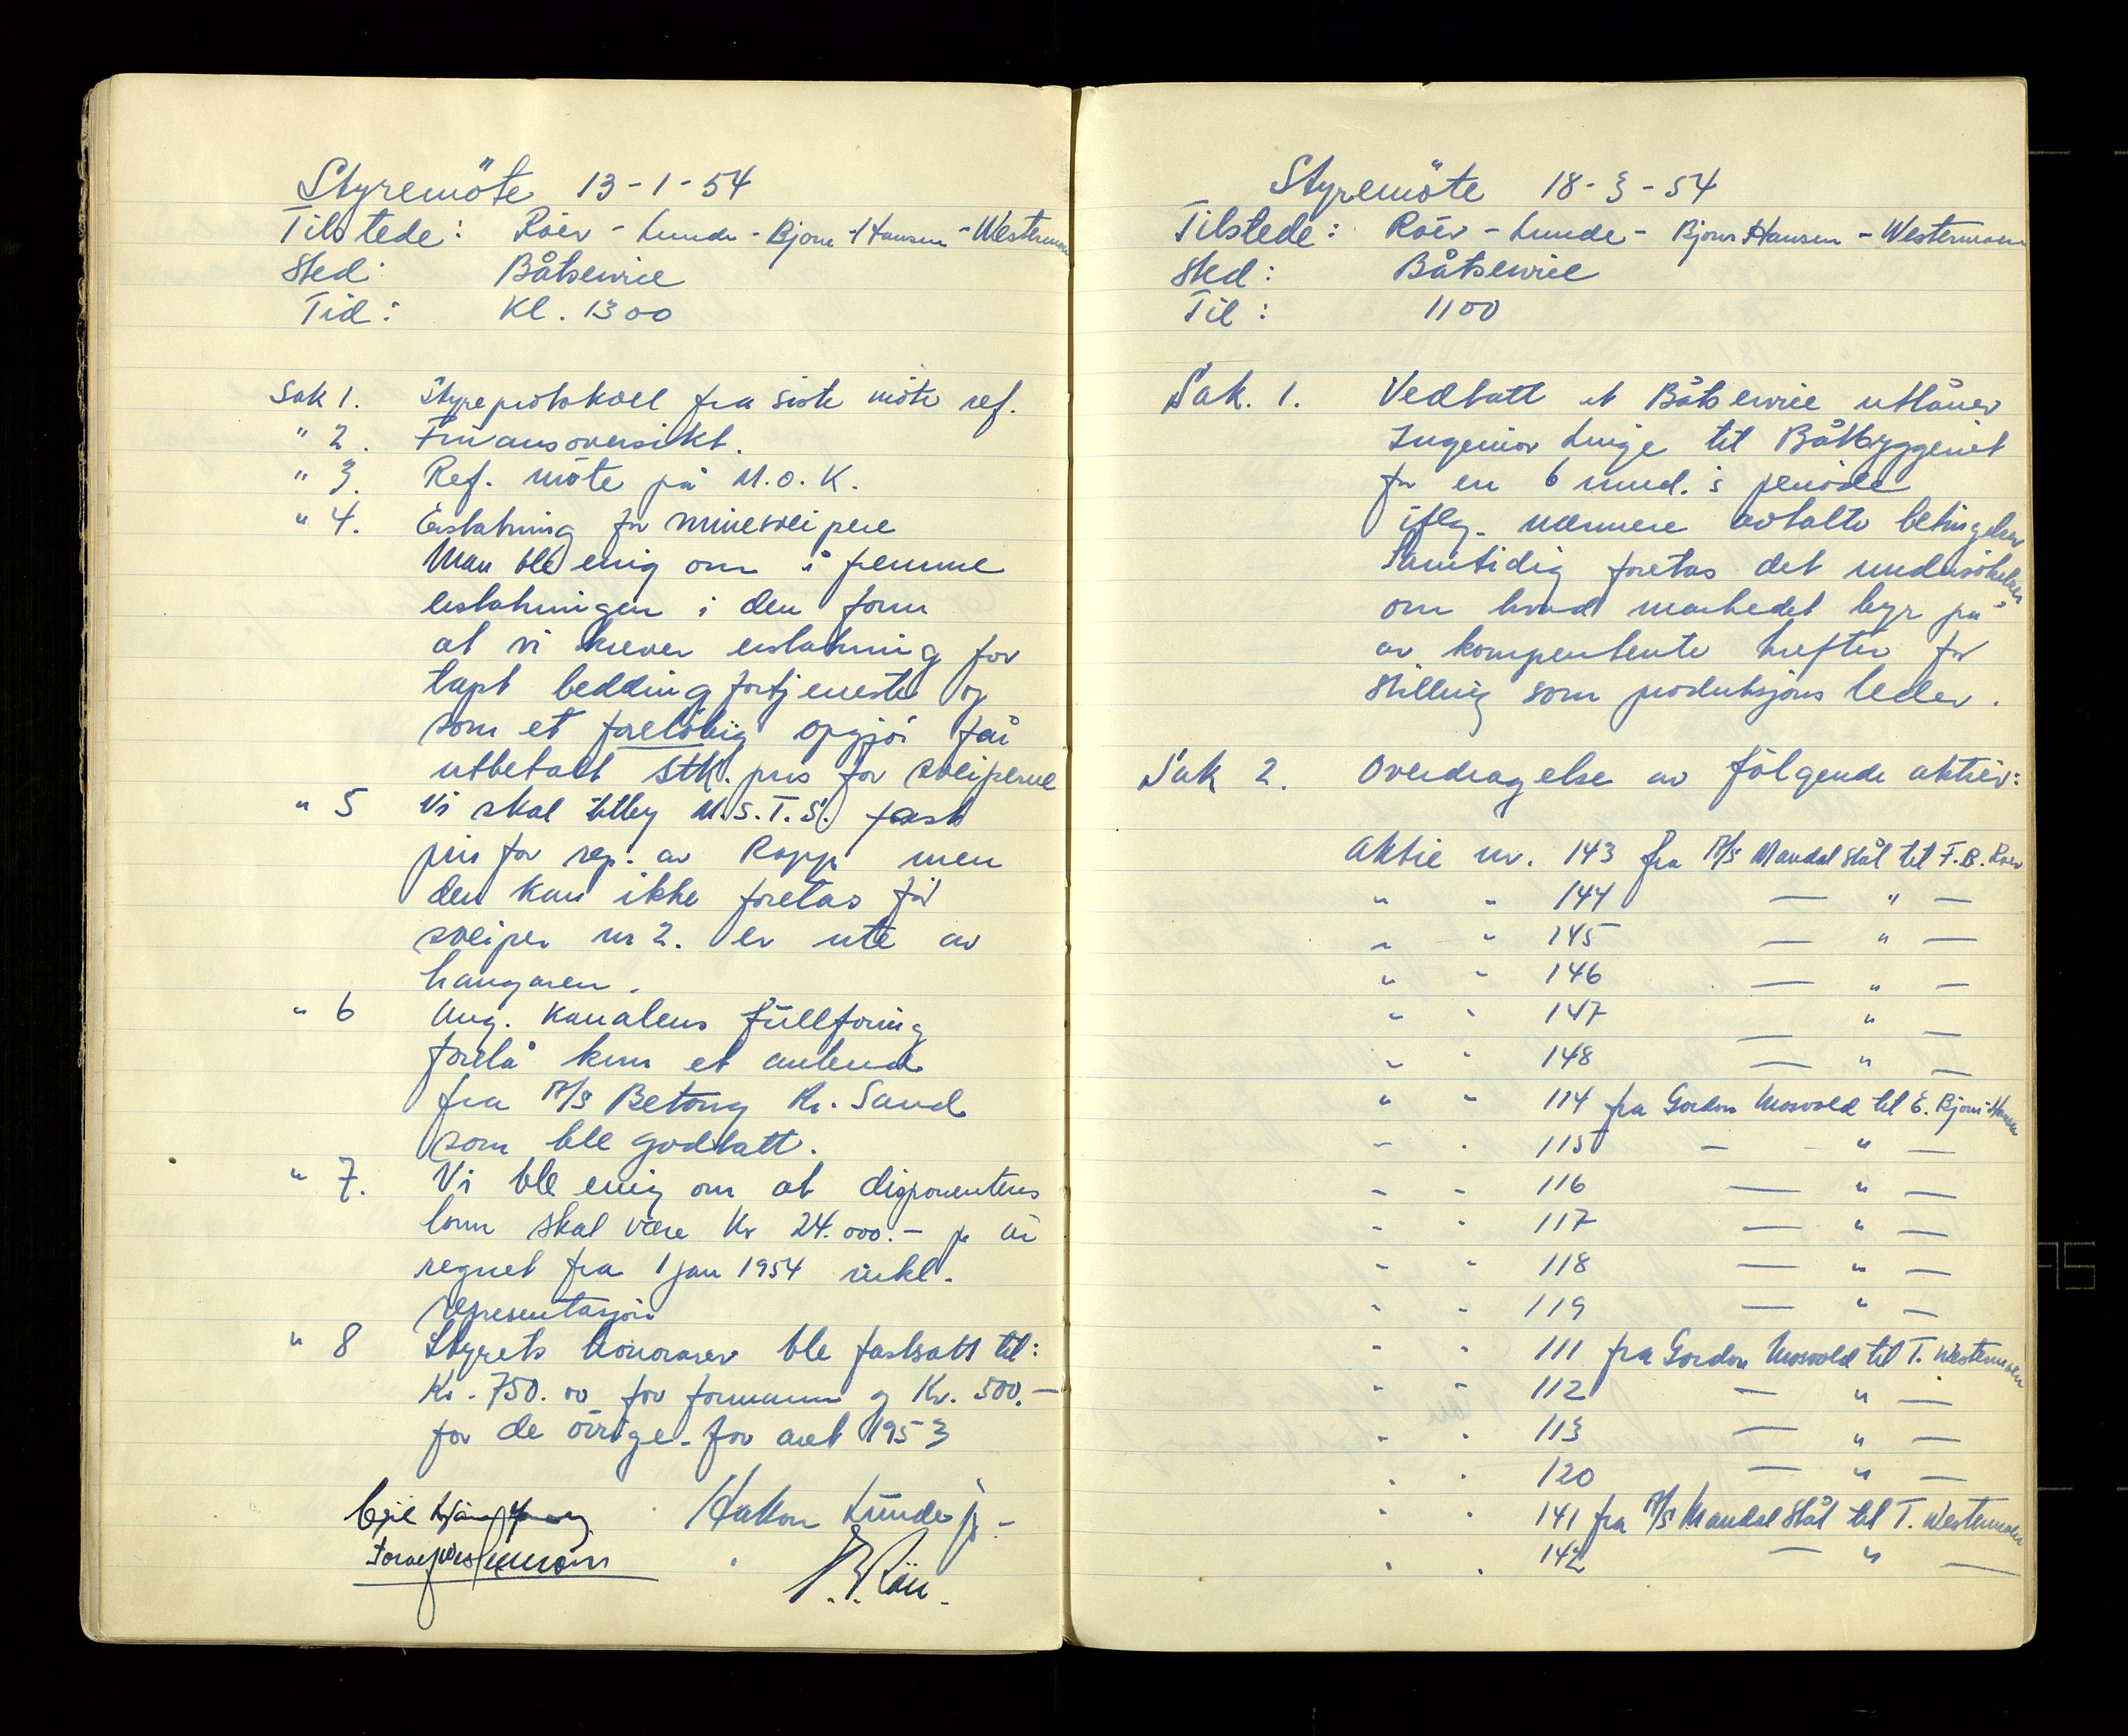 Styremöte 13-1-54
Tilstede: Röer - Lunde - Bjorn-Hansen - Westermoen
Sted: Båtservice
Tid: Kl. 1300
Sak 1. Styreprotokoll fra siste möte ref.
" 2. Finansoversikt.
" 3. Ref. möte på M.O.K.
" 4. Erstatning for minesveipere
Man ble enig om å fremme
erstatningen i den form
at vi krever erstatning for
tapt beddingfortjeneste og
som et forelöbig opgjör får
utbetalt stk. pris for sveiperne
" 5 Vi skal tilby M.S.T.S. fast
pris for rep. av Rapp men
den kan ikke foretas för
sveiper nr 2. er ute av
hangaren.
" 6 Ang. kanalens fullföring
forelå kun et anbud
fra A/S Betong Kr. Sand
som ble godtatt.
" 7. Vi ble enig om at disponentens
lönn skal være Kr 24.000.- pr år
regnet fra 1 jan 1954 inkl.
representasjon
" 8 Styrets honorarer ble fastsatt til:
Kr. 750.00 for formann og Kr. 500.-
for de övrige - for året 1953
Håkon Lunde jr -
Styremöte 18-3-54
Tilstede: Röer - Lunde - Bjorn Hansen - Westermoen
Sted: Båtservice
Til: 1100
Sak. 1. Vedtatt at Båtservice utlåner
Ingeniör Linge til Båtbyggeriet
for en 6 mnd.s periode
iflg. nærmere avtalte betingelser
Samtidig foretas det undersökelser
om hvad markedet byr på
av kompentente krefter for
stilling som produksjons leder.
Sak 2. Overdragelse av fölgende aktier:
Aktie nr. 143 fra A/S Mandal Stål til F.B. Röer
" " 144 — " —
" " 145 — " —
" " 146 — " —
" " 147 — " —
" " 148 — " —
" " 114 fra Gordon Mosvold til E. Bjorn-Hansen
" " 115 — " —
" " 116 — " —
" " 117 — " —
" " 118 — " —
" " 119 — " —
" " 111 fra Gordon Mosvold til T. Westermoen
" " 112 — " —
" " 113 — " —
" " 120 — " —
" " 141 fra A/S Mandal Stål til T. Westermoen
" " 142 — " —